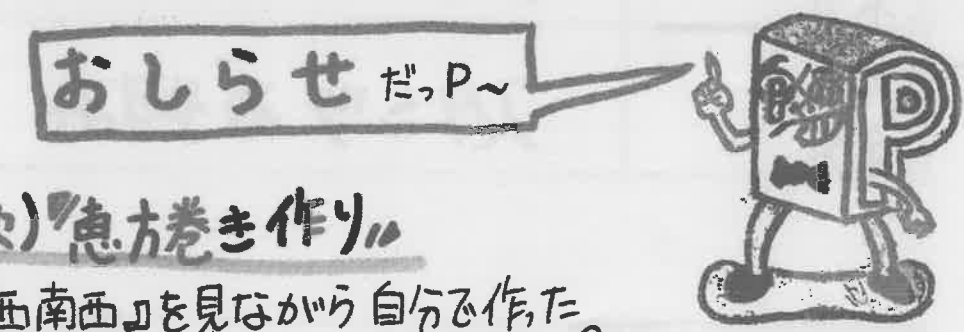 おしらせ だっP～
)〃恵方巻き作り〃
西南西』を見ながら自分で作った。